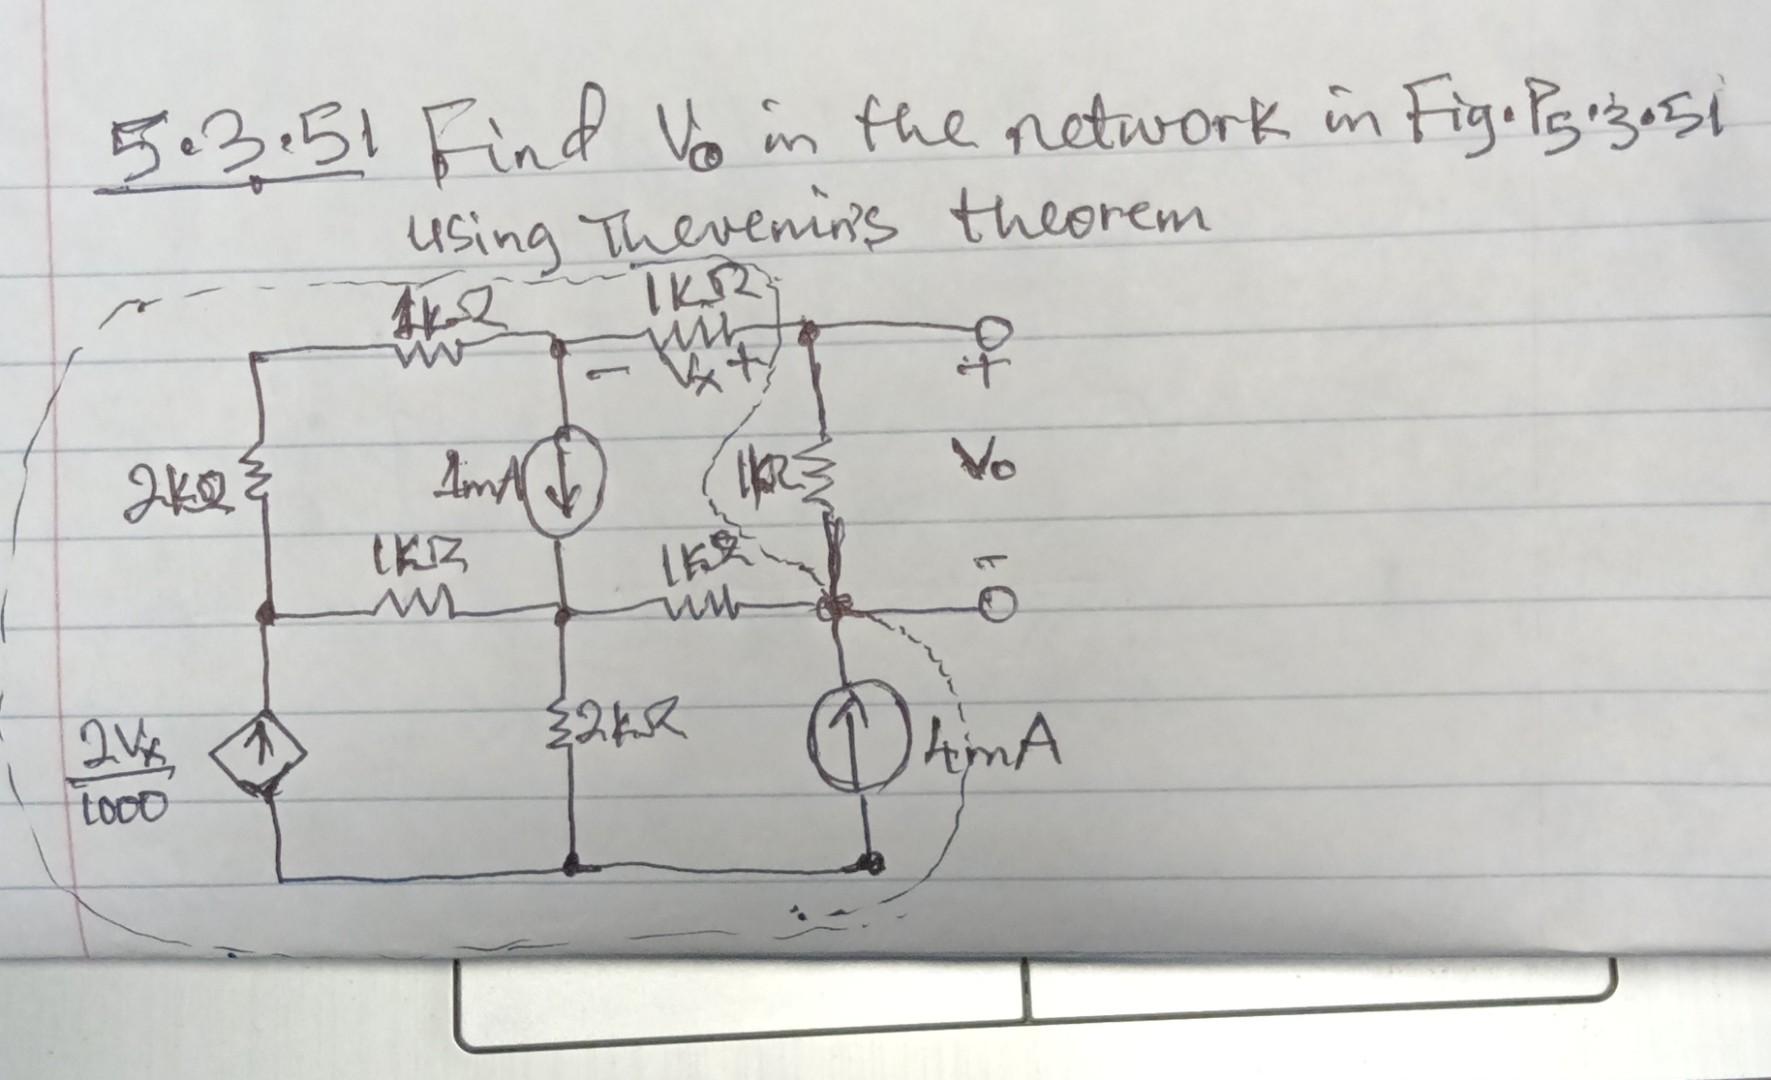 5.3.51 Find Vo in the network in Fig. P5.3.51
using Thevenin's theorem
1kΩ 1kΩ
- Vx + +
2kΩ 1mA 1kΩ Vo
1kΩ 1kΩ -
2Vx/1000 2kΩ 4mA